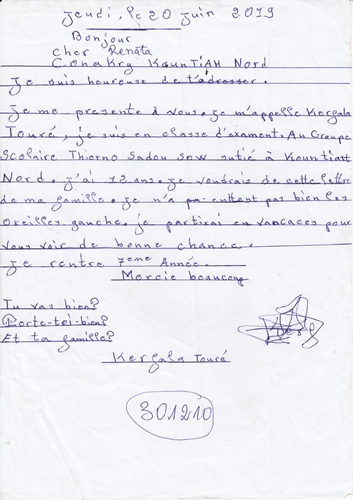 Jeudi, le 20 juin 2019
Bonjour
cher Renata
Conakry KountiAH Nord
Je suis heureuse de t'adresser.
Je me presente à vous. je m'appelle Kergala
Touré, je suis en classe d'exament. Au Groupe
scolaire Thierno Sadou sow sutié à Kountiatt
Nord. j'ai 13 ans. je voudrais de cette lettre
de ma famille. je n'a pa entent pas bien les
oreilles gauche. je partirai en vancaces pour
vous voir de bonne chance.
Je rentre 7eme Année.
Mercie beaucoup
Tu vas bien?
Porte-toi-bien?
Et ta famille?
Kergala Touré
301210